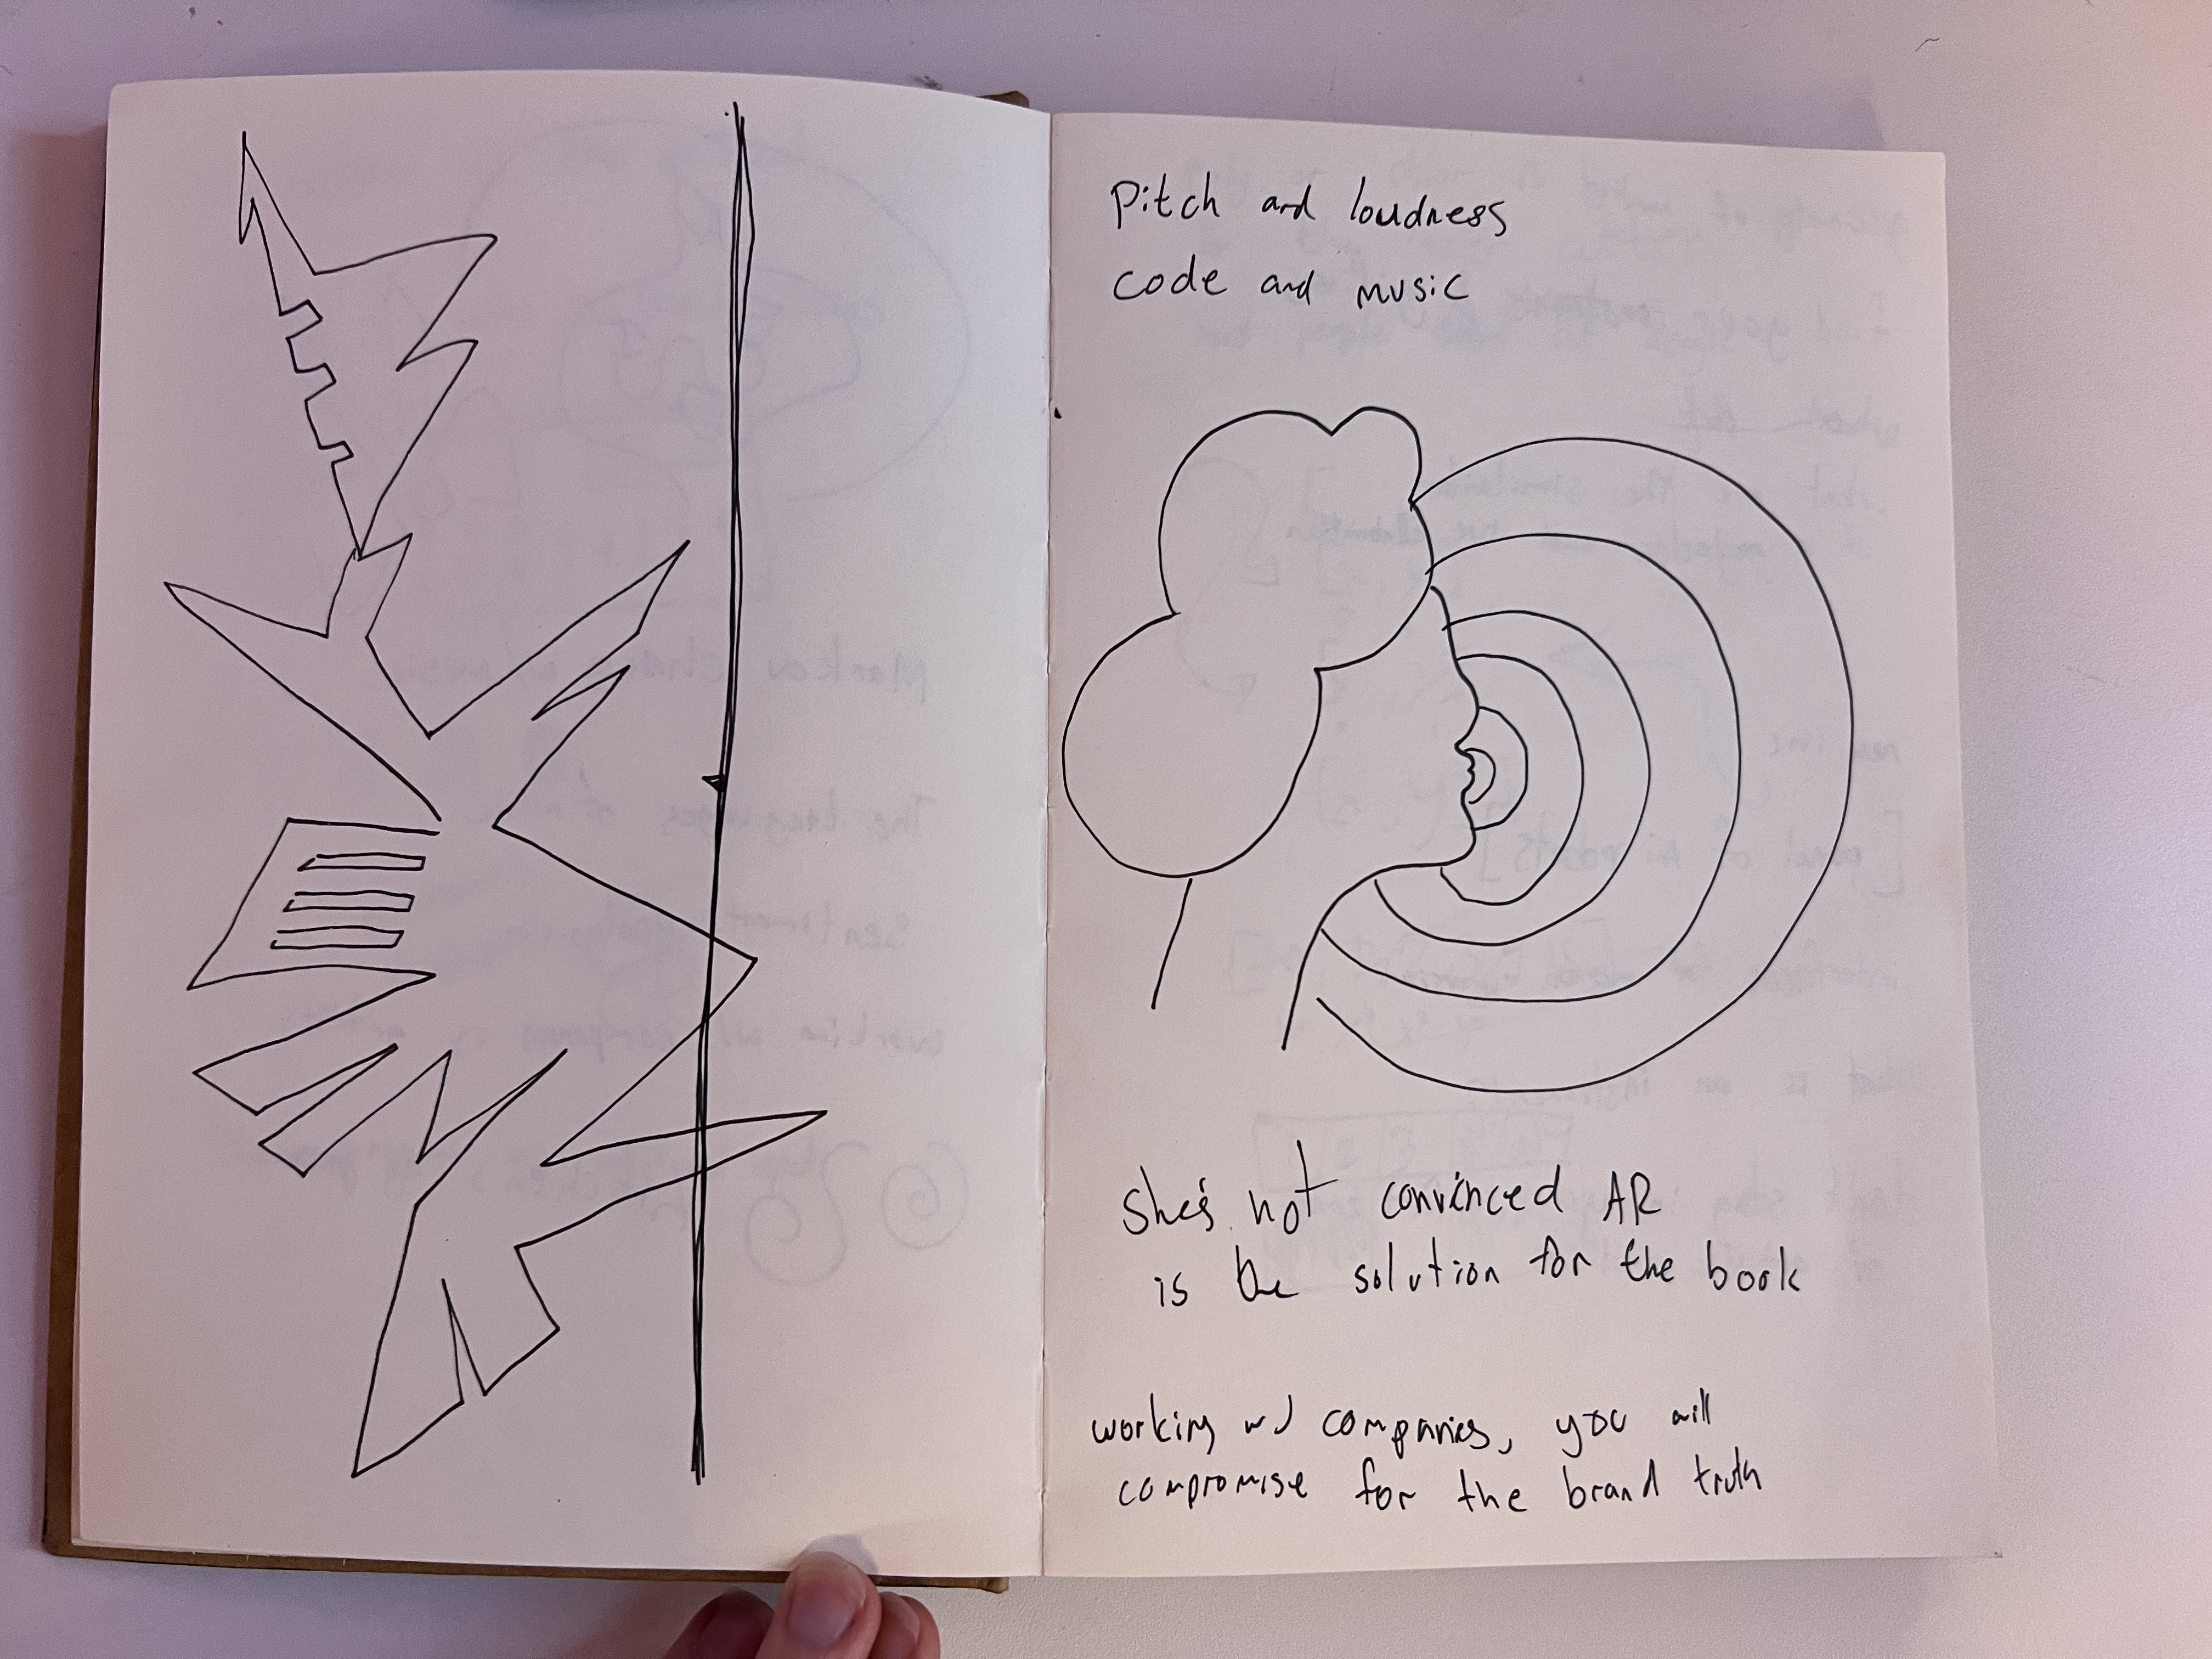 Pitch and loudness
code and music
she's not convinced AR
is the solution for the book
working w/ companies, you will
compromise for the brand truth